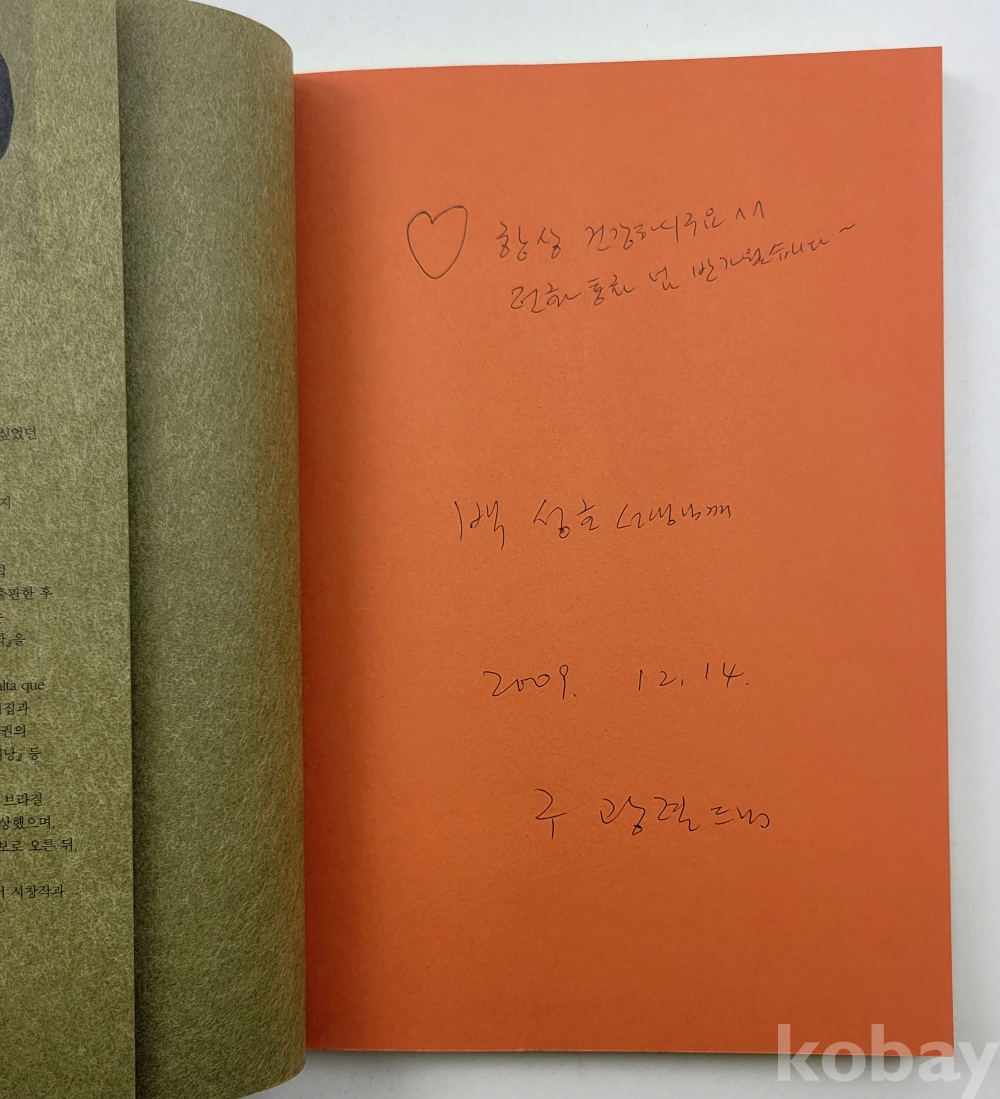 싶었던
지
집
출판한 후
을
alta que
집과
권의
낭』 등
브라질
상했으며,
보로 오른 뒤,
시창작과
♡ 항상 건강하시구요 ^^
전화 통화 넘 반가웠습니다~
백 성호 선생님께
2009. 12. 14.
구 광렬 드림
kobay